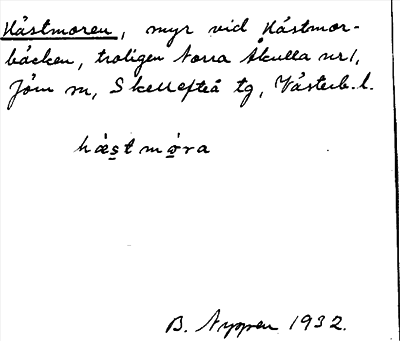 Hästmoren, myr vid Hästmor-
bäcken, troligen Norra Åkulla nr 1,
Jörn sn, Skellefteå tg, Västerb. l.
hæstmøra
B. Nyppen 1932.